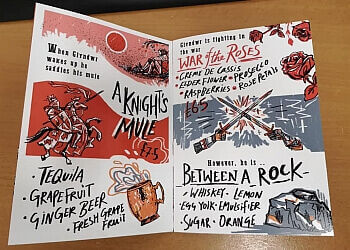 When Girndwr
wakes up he
saddles his mule
A KNIGHT'S
MULE
£7.5
• TEQUILA
• GRAPEFRUIT
• GINGER BEER
• FRESH GRAPE
FRUIT
Girndwr is fighting in
the war
WAR of the ROSES
• CREME DE CASSIS
• ELDERFLOWER • PROSECCO
• RASPBERRIES • ROSE PETALS
£6.5
However, he is ..
BETWEEN A ROCK -
• WHISKEY • LEMON
• EGG YOLK • EMULSIFIER
• SUGAR • ORANGE